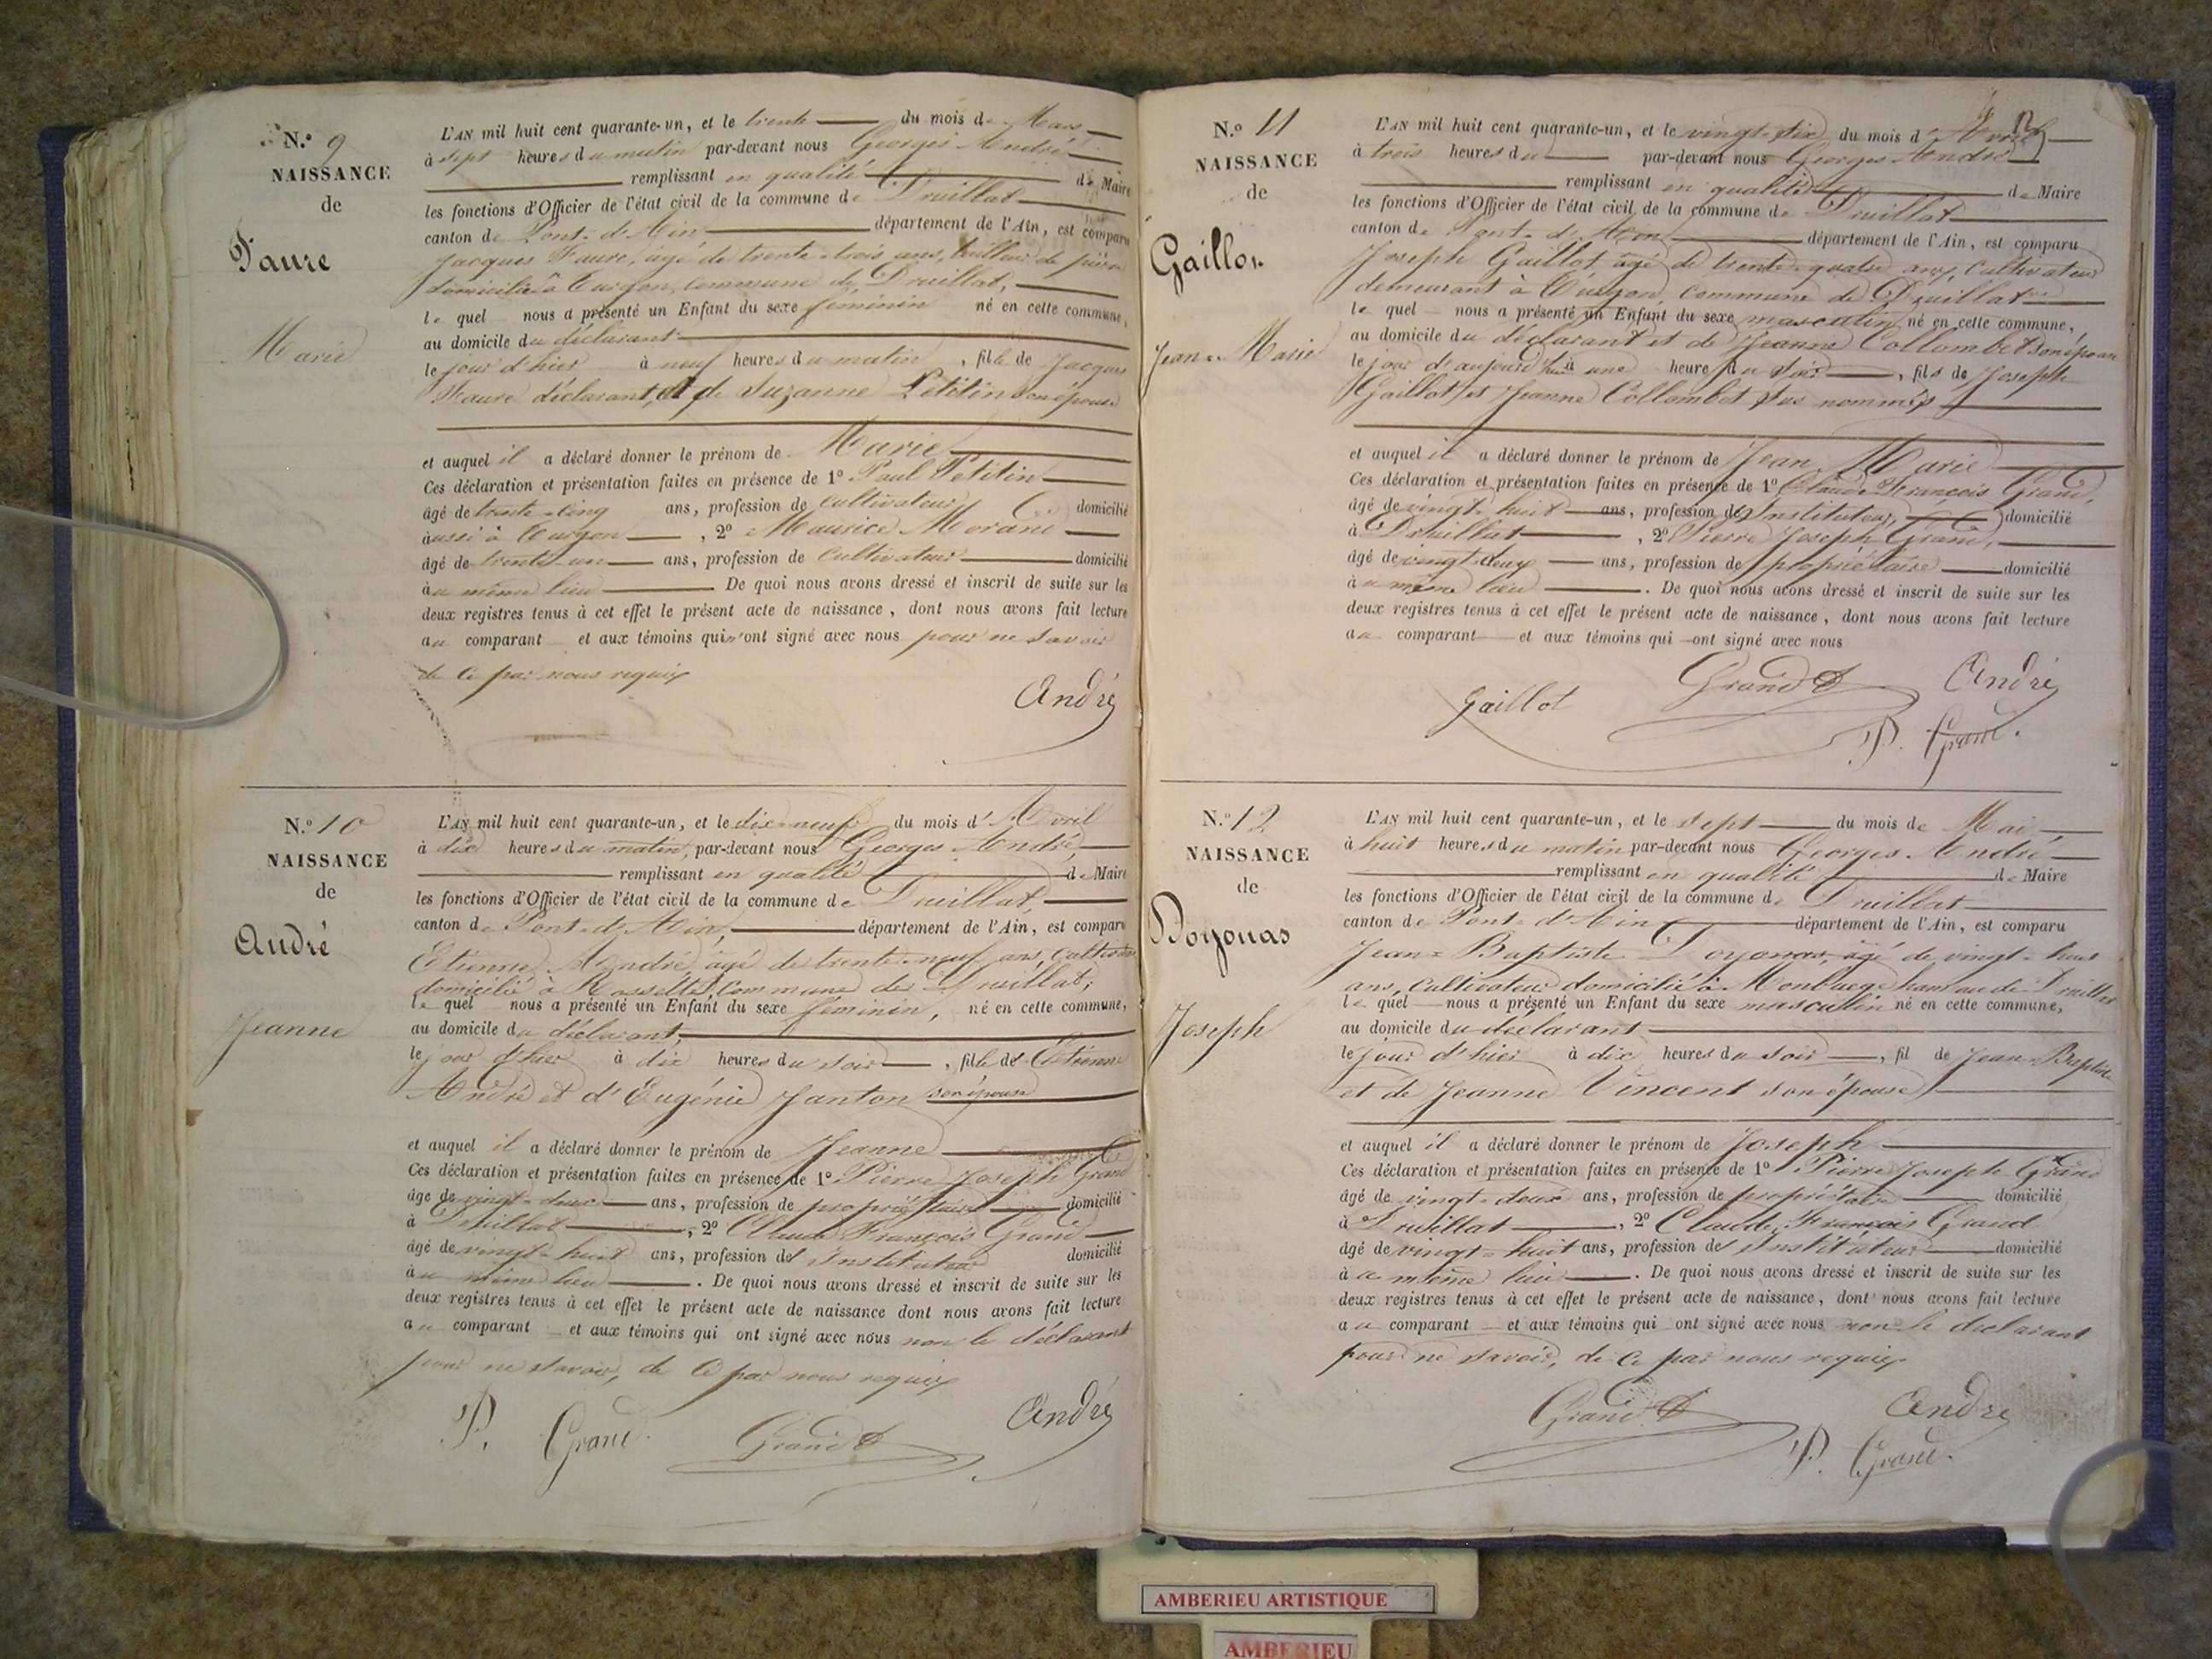 N.º 9
NAISSANCE
de
Faure
Marie
L'AN mil huit cent quarante-un, et le trente du mois de Mars
à sept heures du matin par-devant nous Georges André
remplissant en qualité de Maire
les fonctions d'Officier de l'état civil de la commune de Druillat
canton de Pont-d'Ain département de l'Ain, est comparu
Jacques Faure, âgé de trente-trois ans, tailleur de pierre
domicilié à Turgon, commune de Druillat,
le quel nous a présenté un Enfant du sexe féminin né en cette commune,
au domicile du déclarant
le jour d'hier à neuf heures du matin, fille de Jacques
Faure déclarant, et de Suzanne Petitin son épouse
et auquel il a déclaré donner le prénom de Marie
Ces déclaration et présentation faites en présence de 1º Paul Petitin
âgé de trente-cinq ans, profession de cultivateur domicilié
aussi à Turgon, 2º Maurice Morand
âgé de trente-un ans, profession de cultivateur domicilié
au même lieu De quoi nous avons dressé et inscrit de suite sur les
deux registres tenus à cet effet le présent acte de naissance, dont nous avons fait lecture
au comparant et aux témoins qui n'ont signé avec nous pour ne savoir
de ce par nous requis
André
N.º 10
NAISSANCE
de
André
Jeanne
L'AN mil huit cent quarante-un, et le dix-neuf du mois d'Avril
à dix heures du matin, par-devant nous Georges André,
remplissant en qualité de Maire
les fonctions d'Officier de l'état civil de la commune de Druillat,
canton de Pont-d'Ain, département de l'Ain, est comparu
Etienne André, âgé de trente-neuf ans, cultivateur
domicilié à Rossettes, commune de Druillat,
le quel nous a présenté un Enfant du sexe féminin, né en cette commune,
au domicile du déclarant,
le jour d'hier à dix heures du soir, fille de Etienne
André et d'Eugénie Janton son épouse
et auquel il a déclaré donner le prénom de Jeanne
Ces déclaration et présentation faites en présence de 1º Pierre Joseph Grand
âgé de vingt-deux ans, profession de propriétaire domicilié
à Druillat, 2º Claude François Grand
âgé de vingt-huit ans, profession de Instituteur domicilié
au même lieu. De quoi nous avons dressé et inscrit de suite sur les
deux registres tenus à cet effet le présent acte de naissance dont nous avons fait lecture
au comparant et aux témoins qui ont signé avec nous non le déclarant
pour ne savoir, de ce par nous requis
André
P. Grand. Grand
N.º 11
NAISSANCE
de
Gaillot
Jean-Marie
L'AN mil huit cent quarante-un, et le vingt-six du mois d'Avril
à trois heures du par-devant nous Georges André
remplissant en qualité de Maire
les fonctions d'Officier de l'état civil de la commune de Druillat
canton de Pont-d'Ain département de l'Ain, est comparu
Joseph Gaillot, âgé de trente-quatre ans, cultivateur
demeurant à Turgon, commune de Druillat
le quel nous a présenté un Enfant du sexe masculin né en cette commune,
au domicile du déclarant et de Jeanne Collombet son épouse
le jour d'aujourd'hui à une heure du soir, fils de Joseph
Gaillot et Jeanne Collombet sus nommés
et auquel il a déclaré donner le prénom de Jean Marie
Ces déclaration et présentation faites en présence de 1º Claude François Grand,
âgé de vingt-huit ans, profession de Instituteur, domicilié
à Druillat, 2º Pierre Joseph Grand,
âgé de vingt-deux ans, profession de propriétaire domicilié
au même lieu. De quoi nous avons dressé et inscrit de suite sur les
deux registres tenus à cet effet le présent acte de naissance, dont nous avons fait lecture
au comparant et aux témoins qui ont signé avec nous
Gaillot Grand André
P. Grand.
N.º 12
NAISSANCE
de
Doyonas
Joseph
L'AN mil huit cent quarante-un, et le sept du mois de Mai
à huit heures du matin par-devant nous Georges André
remplissant en qualité de Maire
les fonctions d'Officier de l'état civil de la commune de Druillat
canton de Pont-d'Ain département de l'Ain, est comparu
Jean-Baptiste Doyonas, âgé de vingt-huit
ans, cultivateur domicilié à Monbuege hameau de Druillat
le quel nous a présenté un Enfant du sexe masculin né en cette commune,
au domicile du déclarant
le jour d'hier à dix heures du soir, fil de Jean-Baptiste
et de Jeanne Vincent son épouse
et auquel il a déclaré donner le prénom de Joseph
Ces déclaration et présentation faites en présence de 1º Pierre Joseph Grand
âgé de vingt-deux ans, profession de propriétaire domicilié
à Druillat, 2º Claude François Grand
âgé de vingt-huit ans, profession de Instituteur domicilié
au même lieu. De quoi nous avons dressé et inscrit de suite sur les
deux registres tenus à cet effet le présent acte de naissance, dont nous avons fait lecture
au comparant et aux témoins qui ont signé avec nous non le déclarant
pour ne savoir, de ce par nous requis
Grand André
P. Grand.
AMBERIEU ARTISTIQUE
AMBERIEU